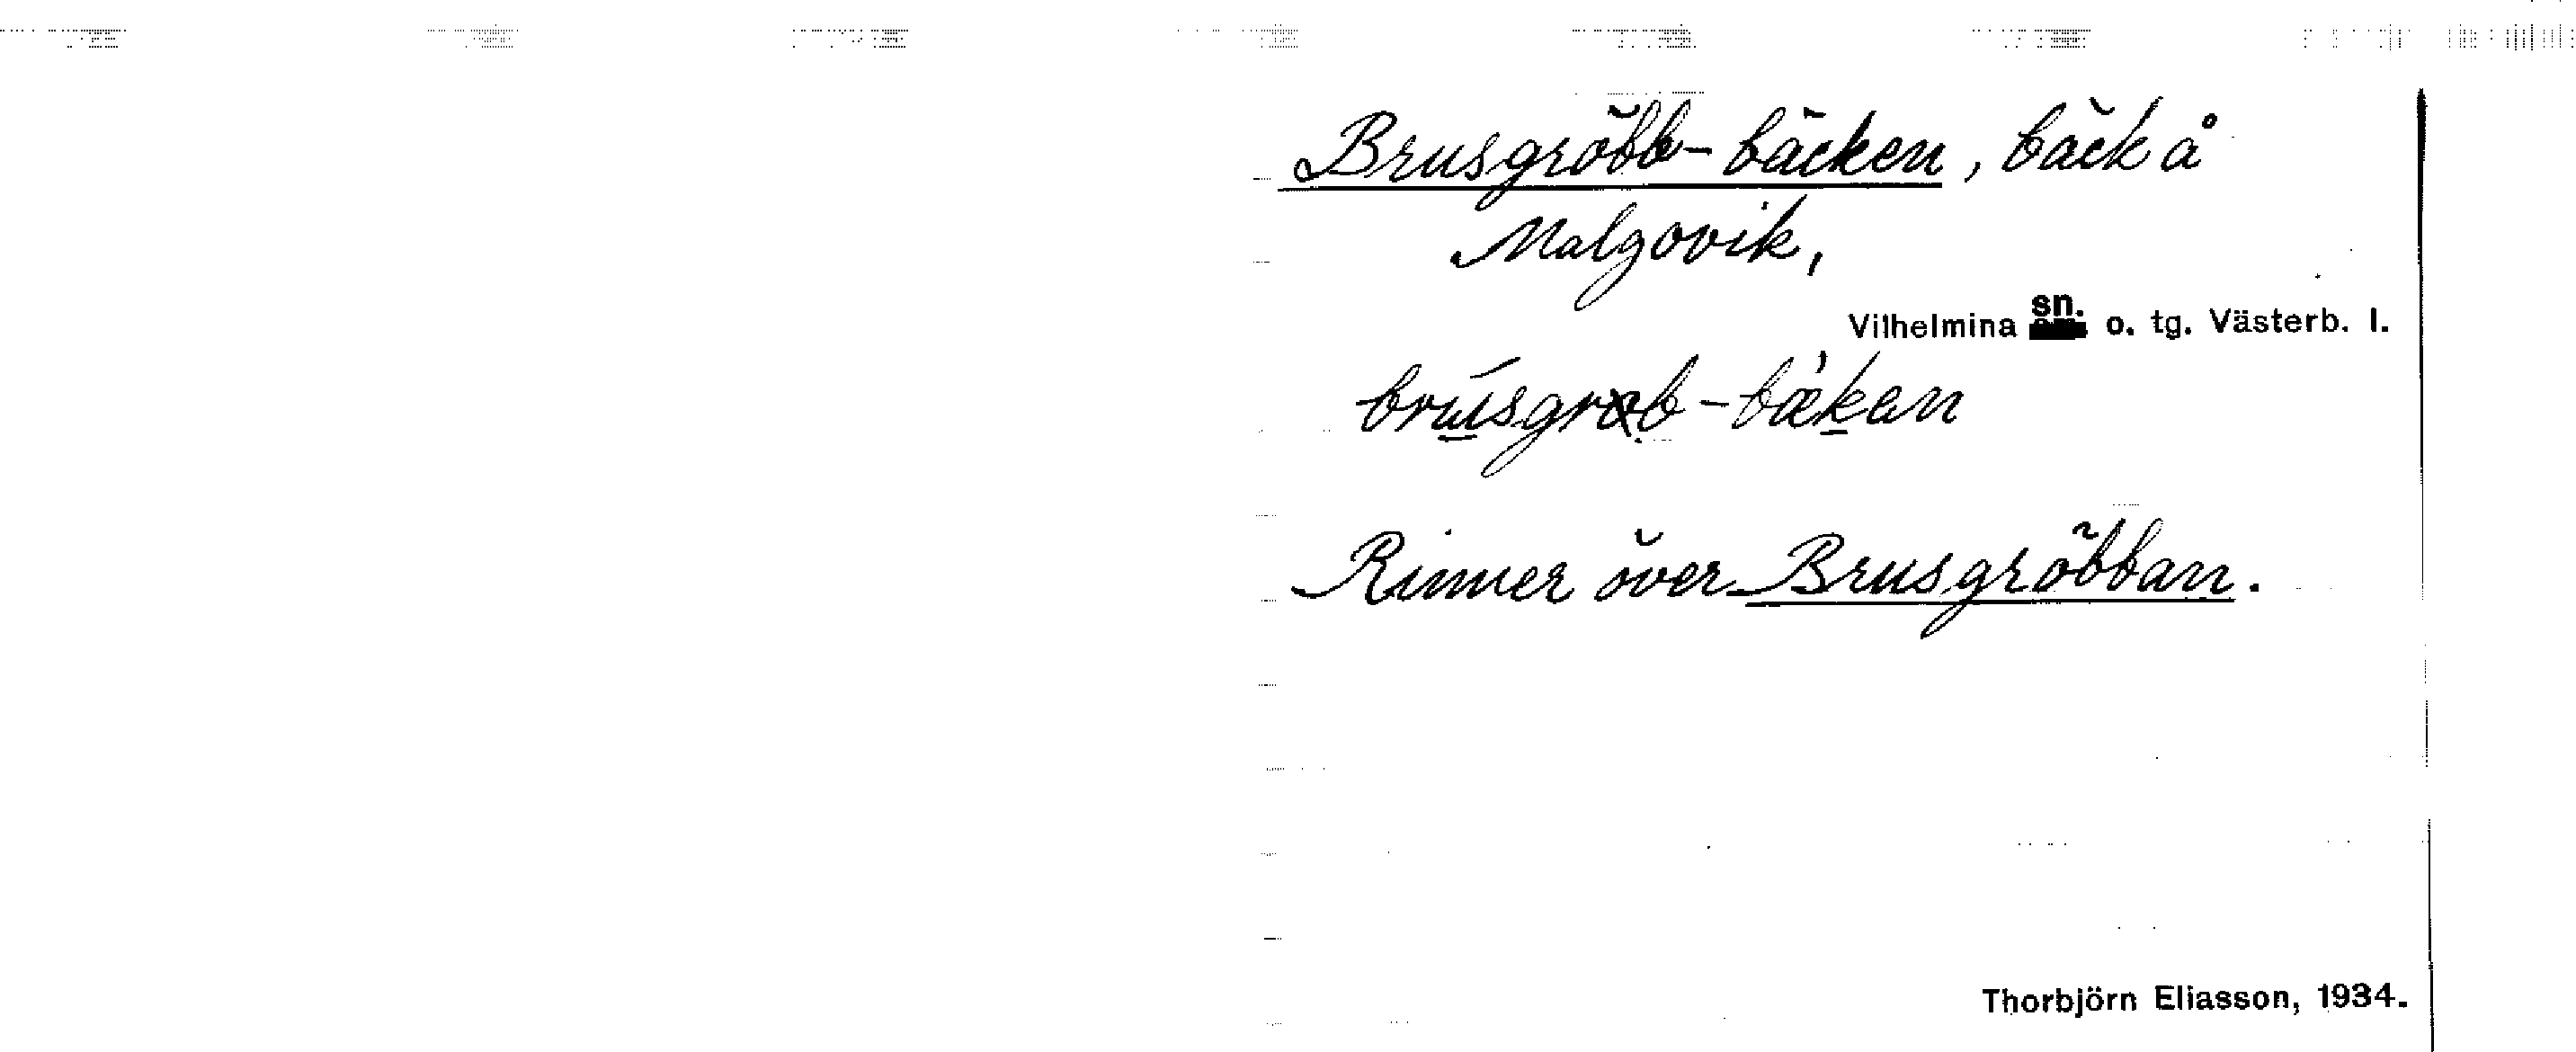 Brusgröbb-bäcken, bäck å
Malgovik,
Vilhelmina sn. o. tg. Västerb. l.
Rinner över Brusgröbban.
Thorbjörn Eliasson, 1934.